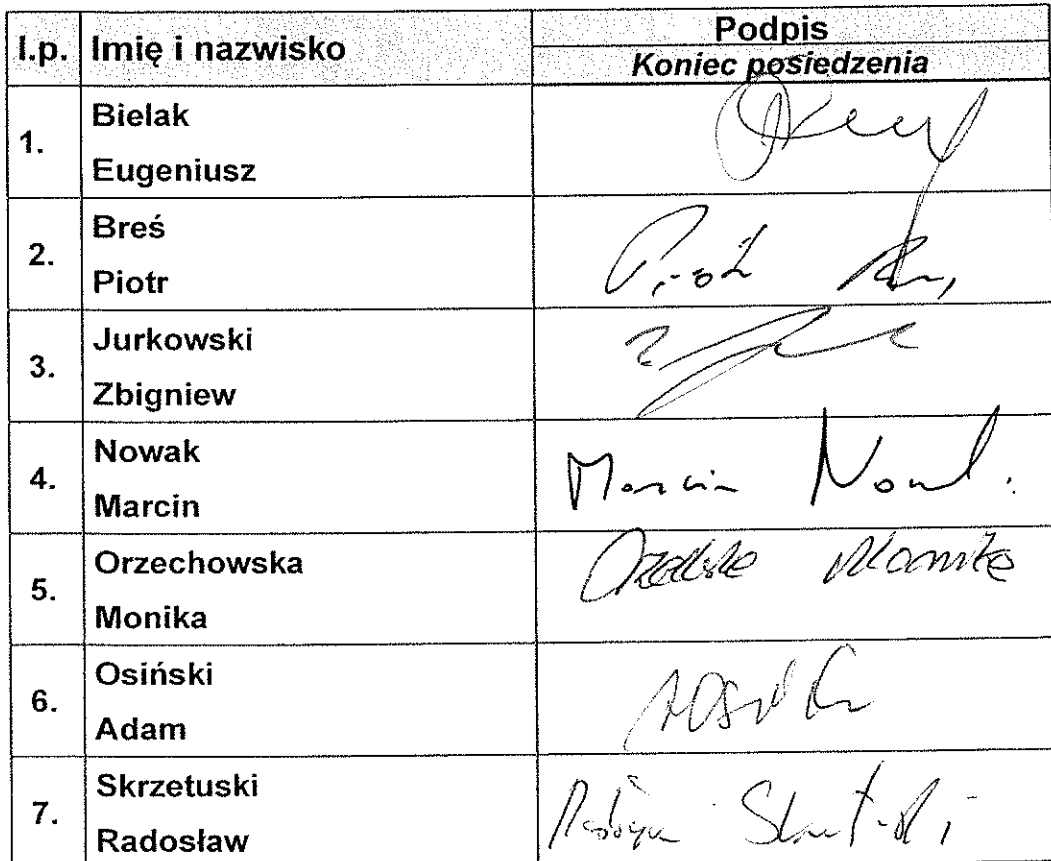 l.p. Imię i nazwisko Podpis
Koniec posiedzenia
1. Bielak
Eugeniusz
2. Breś
Piotr
Piotr
3. Jurkowski
Zbigniew
4. Nowak
Marcin
Marcin Nowak
5. Orzechowska
Monika
Monika
6. Osiński
Adam
7. Skrzetuski
Radosław